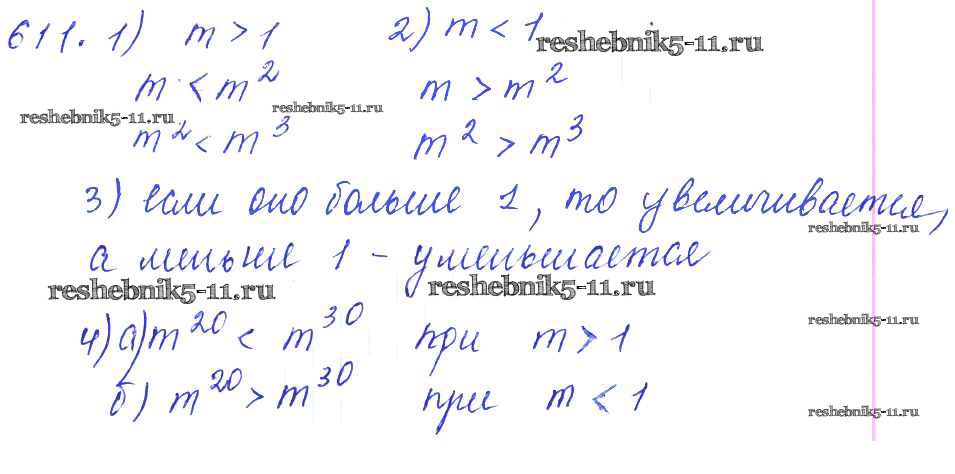 611. 1) m > 1 2) m < 1
reshebnik5-11.ru
m < m² m > m²
reshebnik5-11.ru reshebnik5-11.ru
m² < m³ m² > m³
3) если оно больше 1, то увеличивается,
reshebnik5-11.ru
а меньше 1 - уменьшается
reshebnik5-11.ru reshebnik5-11.ru
4) а) m²⁰ < m³⁰ при m > 1
reshebnik5-11.ru
б) m²⁰ > m³⁰ при m < 1
reshebnik5-11.ru